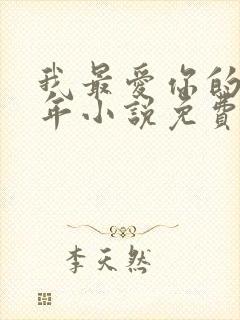 我最爱你的
年小説免費
李天然